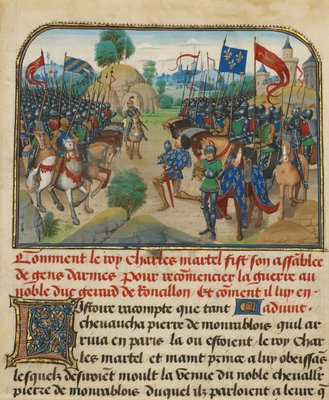 Comment le roy Charles martel fist son assablee
de gens darmes Pour recōmencier la guerre au
noble duc gerard de Roncillon Et cōment il luy en
Istoire racompte que tant aduint
cheuaucha pierre de monrablois quil ar
riua en paris la ou estoient le roy Char
les martel et maint prince a luy obeissās
lesquelz desiroiēt moult la venue du noble cheuallr̄
pierre de monrablois duquel ilz parloient a leure q